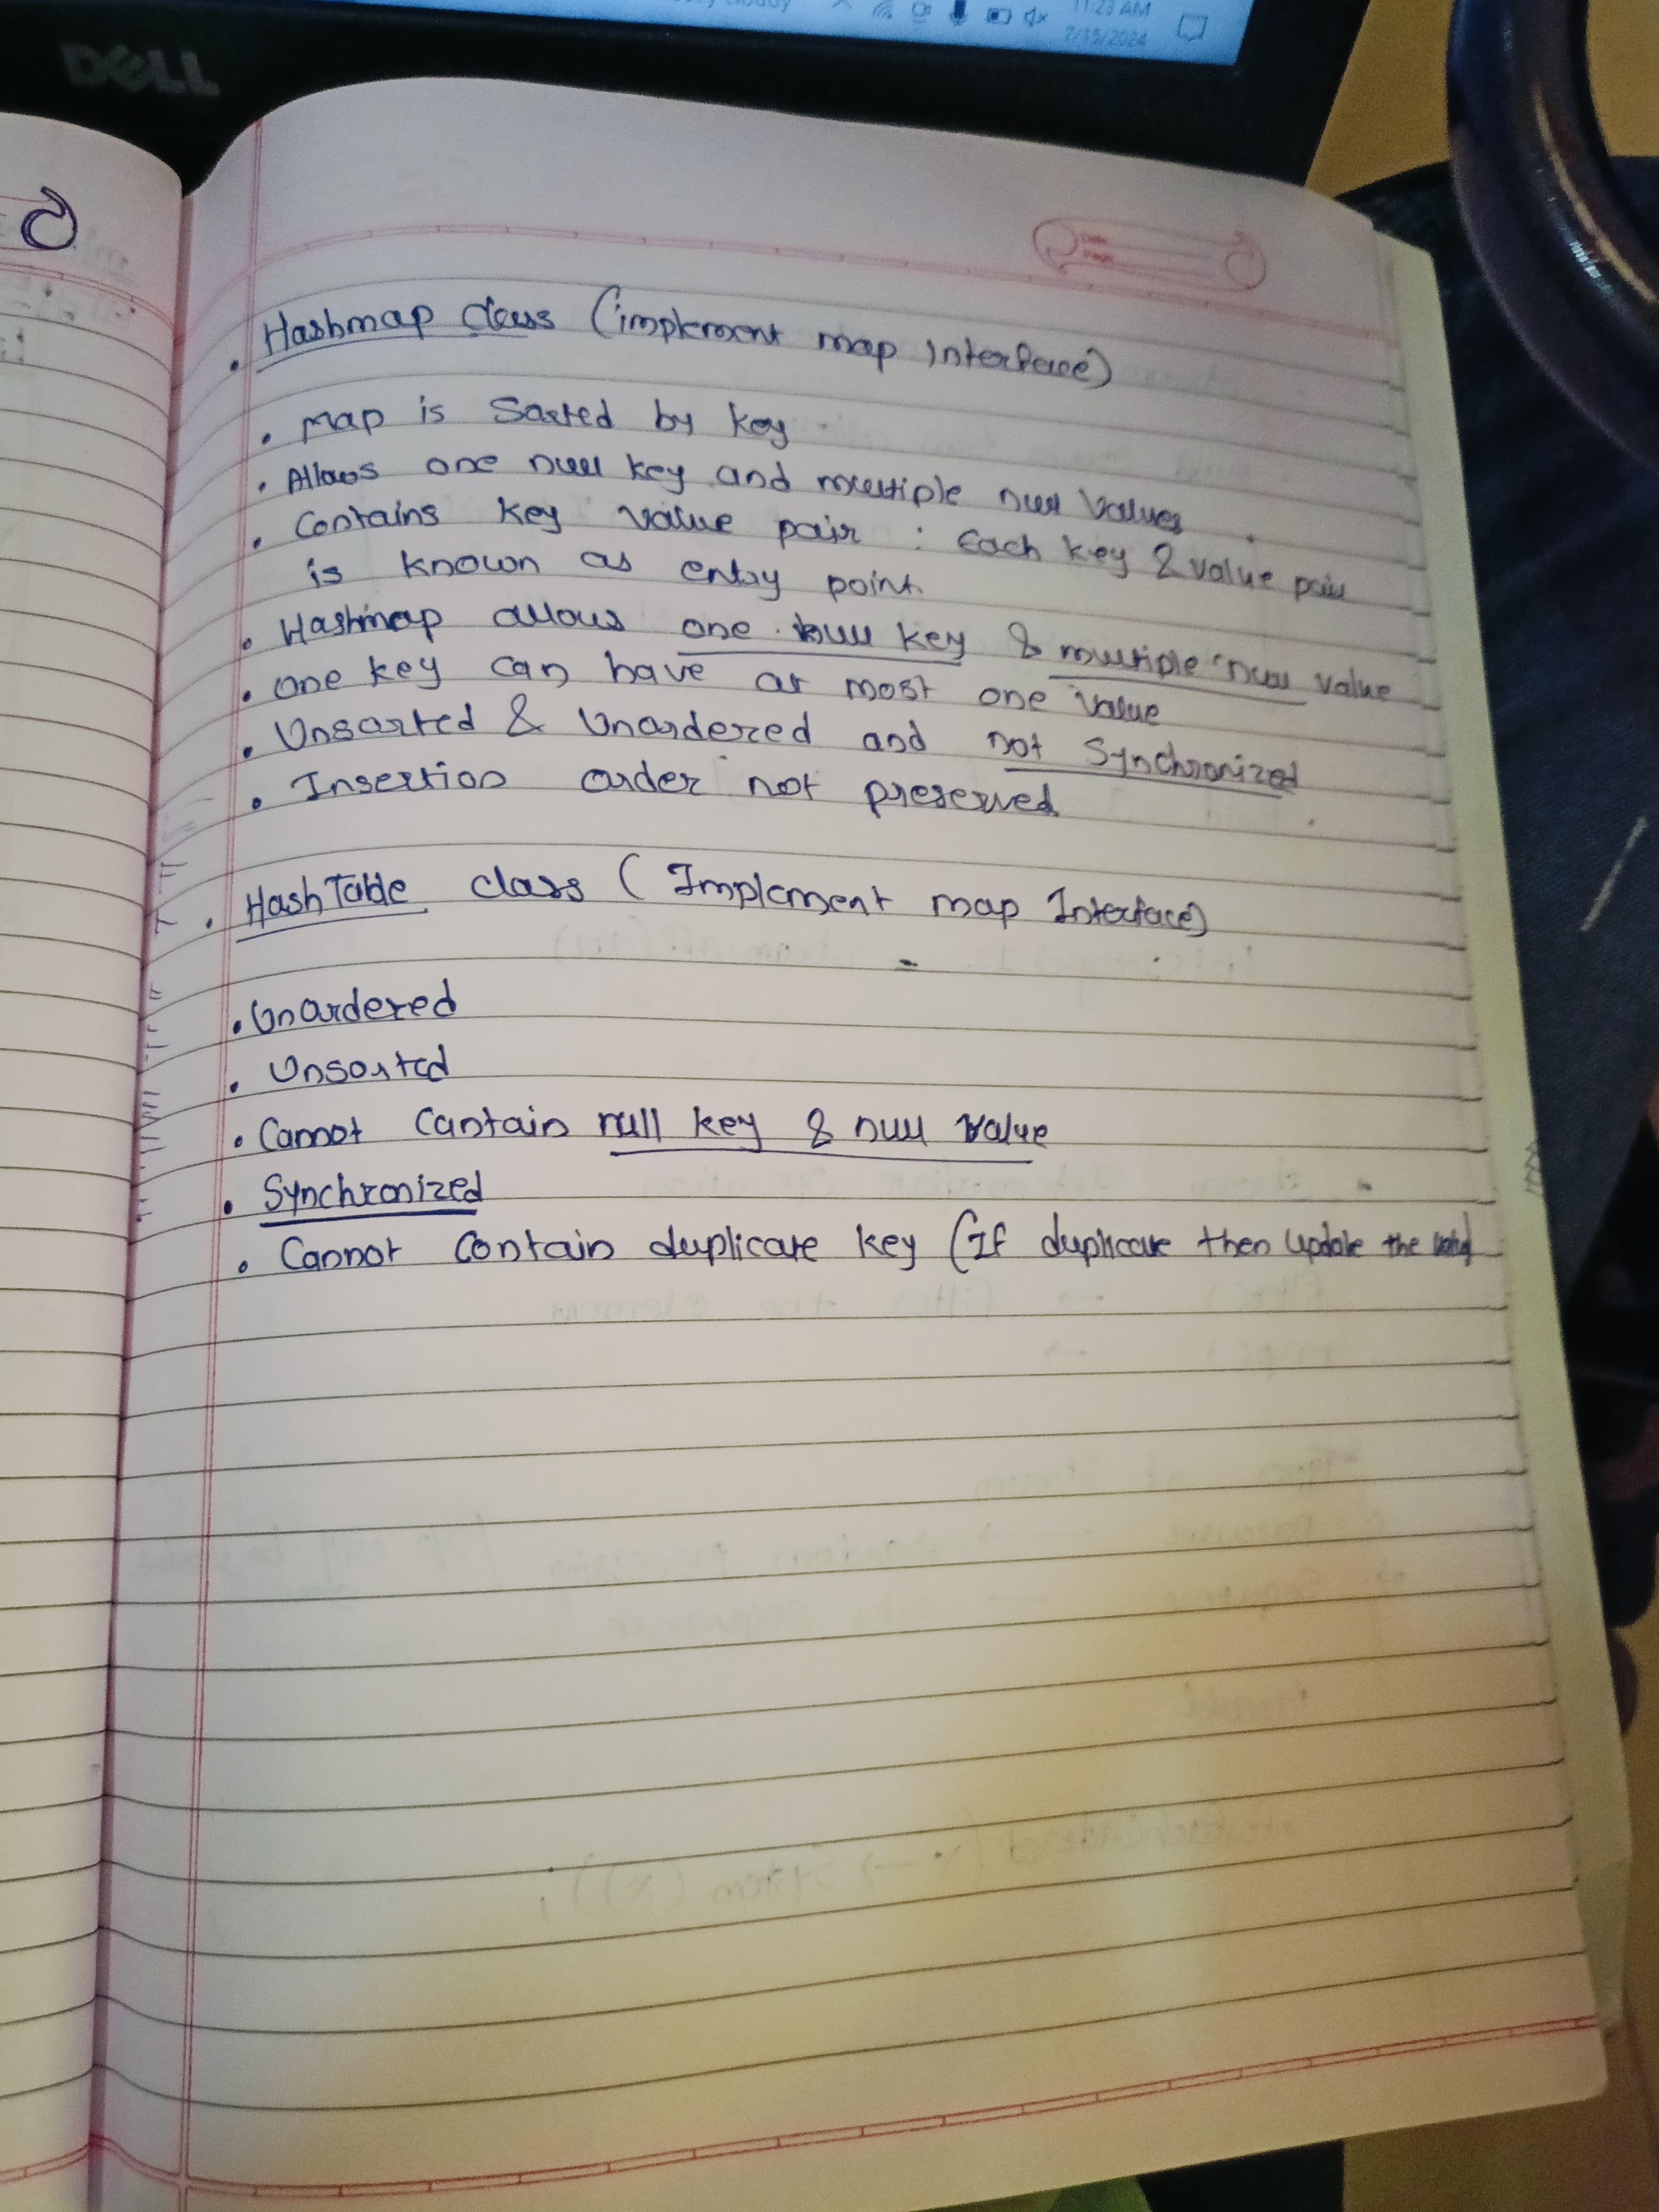 11:23 AM
7/15/2024
DELL
Date
Page
• Hashmap class (implement map Interface)
• map is Sorted by key
• Allows one null key and multiple null values
• Contains key value pair : Each key & value pair
is known as entry point.
• Hashmap allows one null key & multiple null value
• One key can have at most one value
• Unsorted & Unordered and not Synchronized
• Insertion order not preserved
• HashTable class (Implement map Interface)
• Unordered
• Unsorted
• Cannot Contain null key & null value
• Synchronized
• Cannot Contain duplicate key (If duplicate then update the